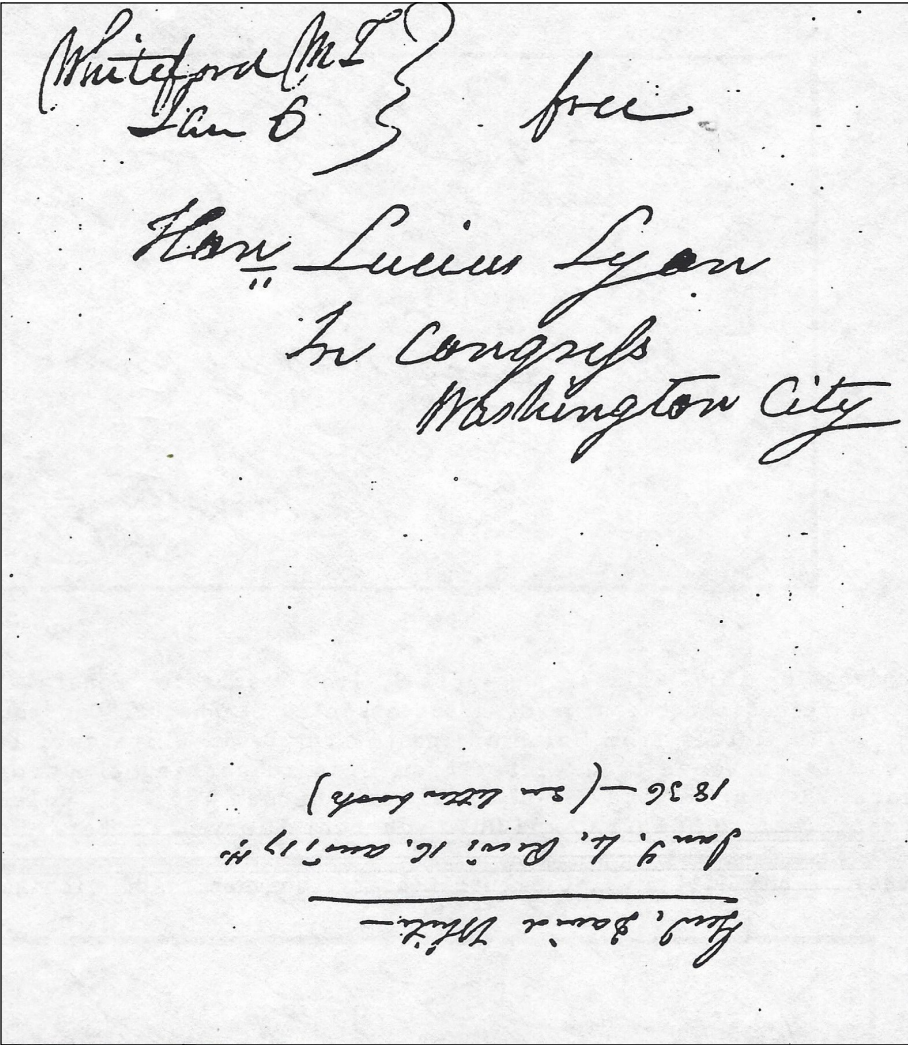 Whiteford M T
Jan 6
free
Hon Lucius Lyon
In Congress
Washington City
Genl. David White—
Jany. 4, Recd. 16, ansd. 17th
1836 — (In letter book)